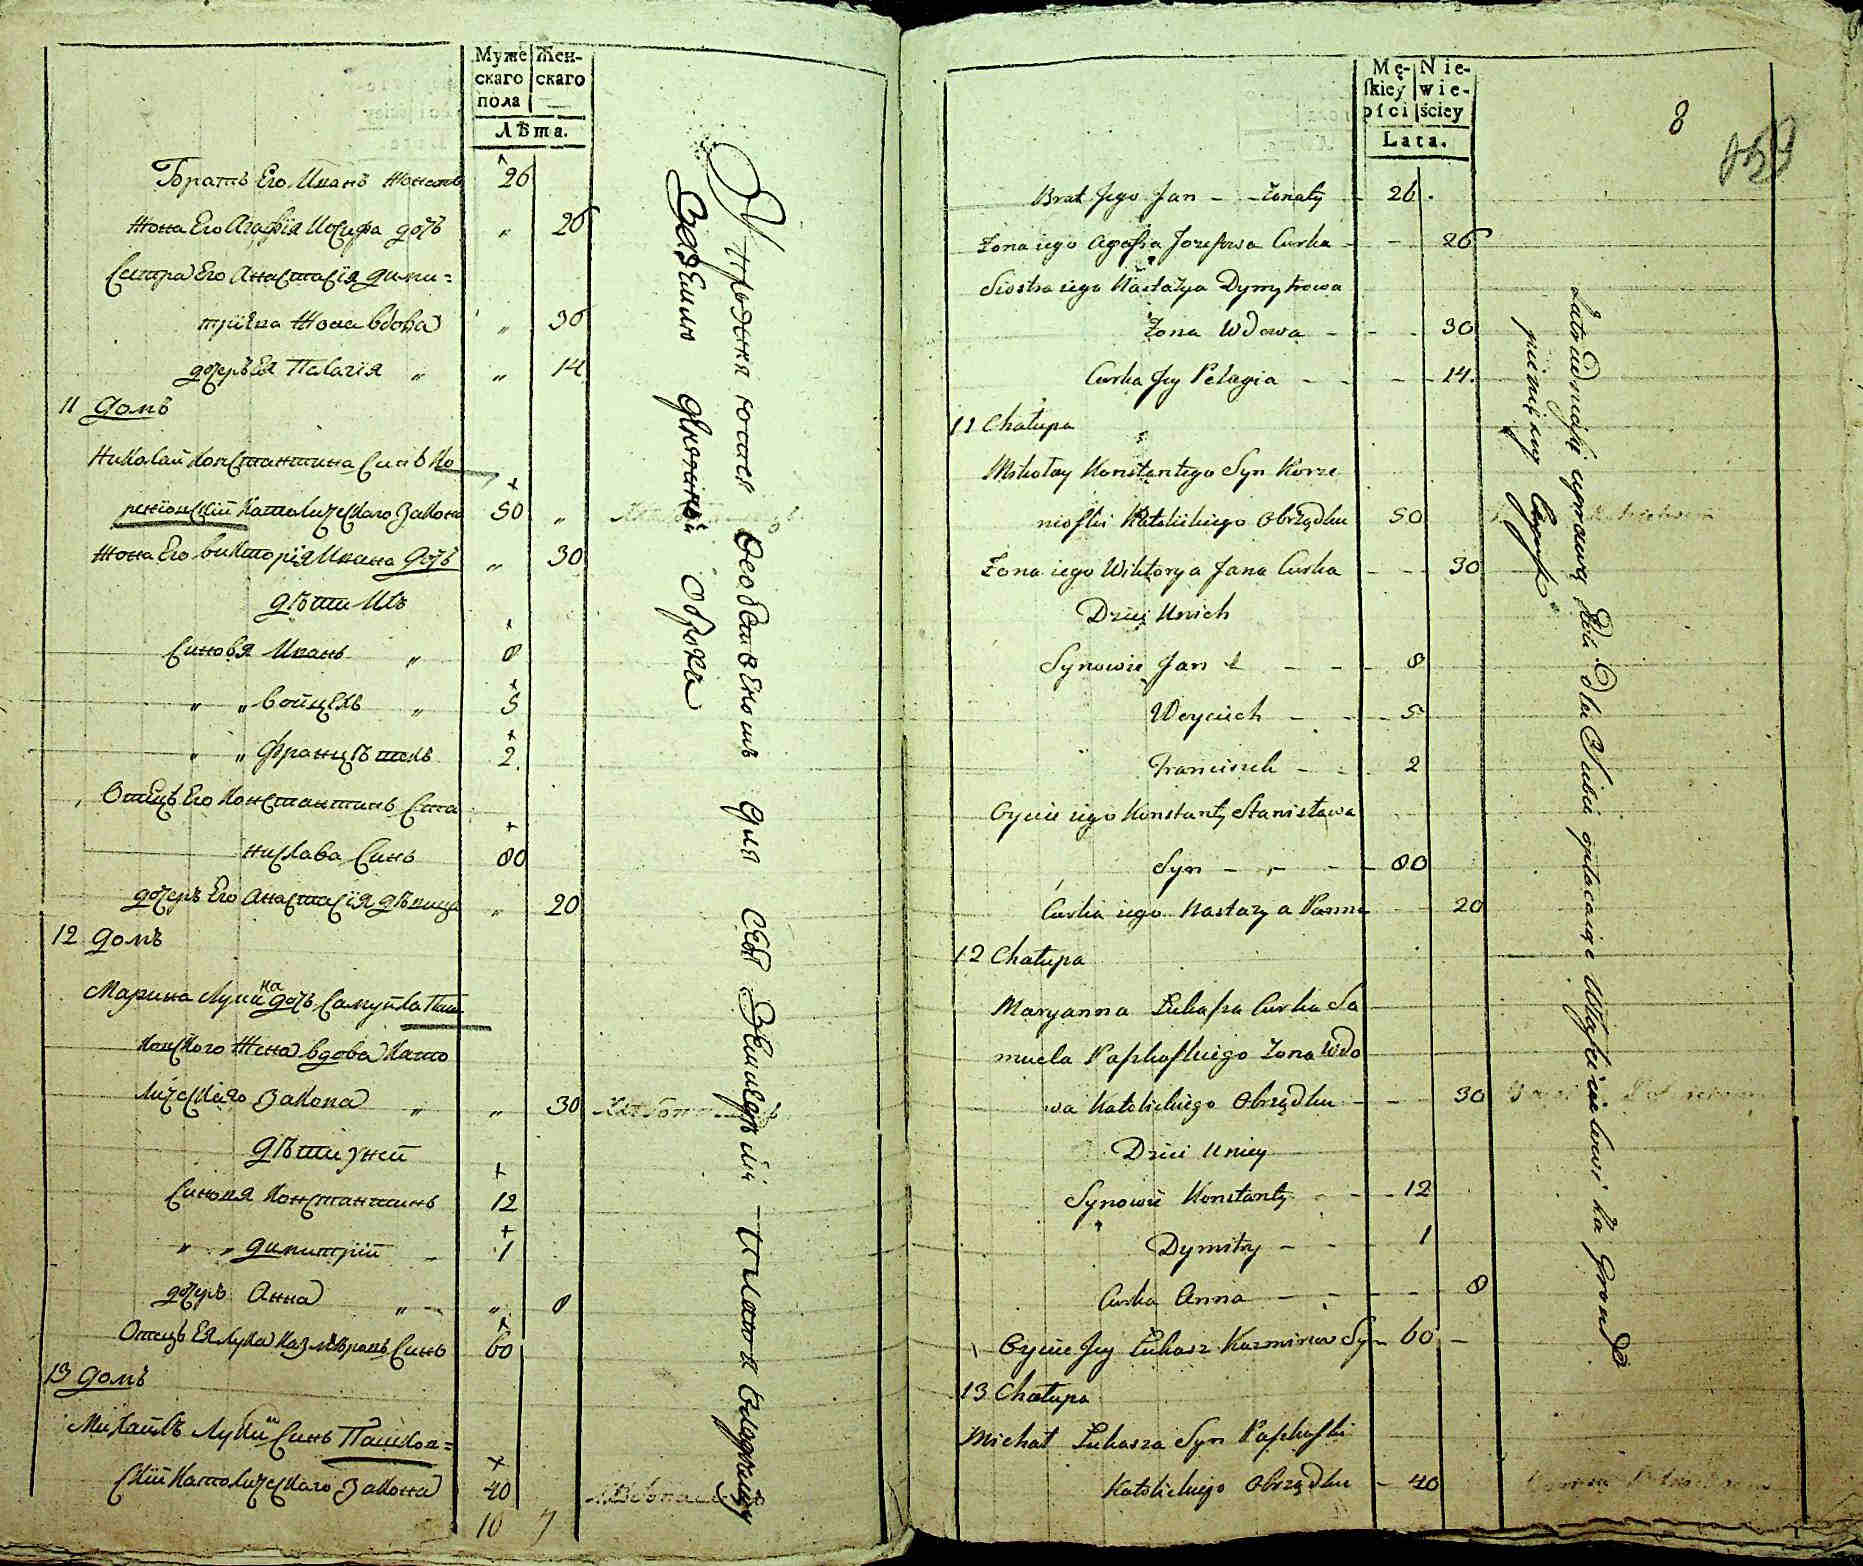 Муже Жен-
скаго скаго
пола
Лѣта.
Братъ Его Иванъ Жонатъ 26
Жона Его Агафія Иосифа дочъ „ 26
Сестра Его Анастасія дими=
тріева Жона вдова „ 30
дочеръ Ея Палагія „ „ 14
11 домъ
Николай Константина Синъ Ко
ренiовскій Католическаго Закона 50 „
Жона Его Викторія Ивана дочъ „ 30
дѣти Ихъ
Синовя Иванъ „ 8
„ „ войцехъ „ 5
„ „ францѣшекъ 2
Отецъ Его Константинъ Ста
нислава Синъ 80
дочеръ Его Анастасія дѣвица „ 20
12 домъ
Марина Лукина дочъ Самуйла Паш
ковского Жена вдова Като
лическаго Закона „ „ 30
дѣти унеи
Синовя Константинъ 12
„ „ димитрій 1
дочеръ Анна „ „ 8
Отецъ Ея Лука Казмѣровъ Синъ 60
13 домъ
Михайлъ Лукий Синъ Пашков=
скій Католическаго Закона 40
10 7
для себя
За землю денежный оброка
Mę- Nie-
skiey wie-
płci ściey
Lata.
8
Brat Jego Jan - - Żonaty - 26 .
Żona iego Agafia Jozefowa Curka - - - 26
Siostra iego Nastazya Dymytrowa
Żona Wdowa - - - 30
Curka Jey Pelagia - - - 14.
11 Chałupa
Mikołay Konstantego Syn Korze
nioski Katolickiego Obrządku 50
Żona iego Wiktorya Jana Curka - - - 30
Dzieci Unich
Synowie Jan - - - 8
Woyciech - - - 5
Franciszek - - - 2
Oyciec iego Konstanty Stanisława
Syn - - - - 80
Curka iego Nastazya Panna 20
12 Chałupa
Maryanna Łukasza Curka Sa
muela Paszkoskiego Żona Wdo
wa Katolickiego Obrządku - - - 30
Dzieci Uniey
Synowie Konstanty - - - 12
Dymitry - - 1
Curka Anna - - - - 8
Oyciec Jey Łukasz Kazmirow Sy - 60 -
13 Chałupa
Michał Łukasza Syn Paszkoski
Katolickiego Obrządku - 40
Zatrudniaią się uprawą Roli Dla Siebie opłacaiąc Właścicielowi za Grond
pieniężny Czynsz